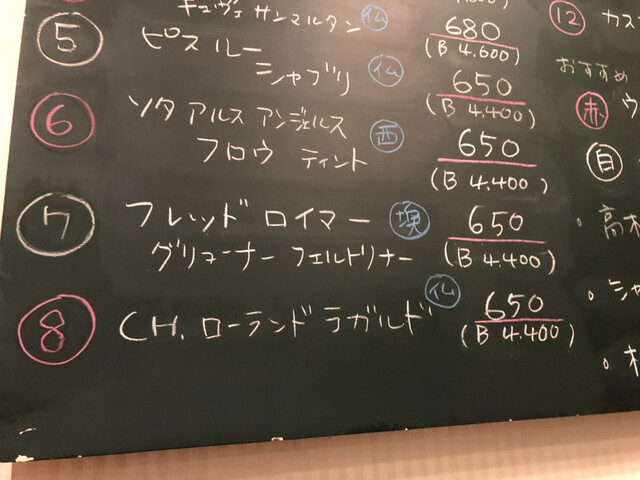 キュヴェ サンマルタン 仏 680
(B 4.600)
⑤ ピスルー
シャブリ 仏 650
(B 4.400)
⑥ ソタ アルス アンジェルス
フロウ ティント 西 650
(B 4.400)
⑦ フレッド ロイマー 墺 650
グリューナー フェルトリナー (B 4.400)
⑧ CH. ローランド ラガルド 仏 650
(B 4.400)
⑫ カス
おすすめ
赤 ウ
白
・高木
・シャ
・